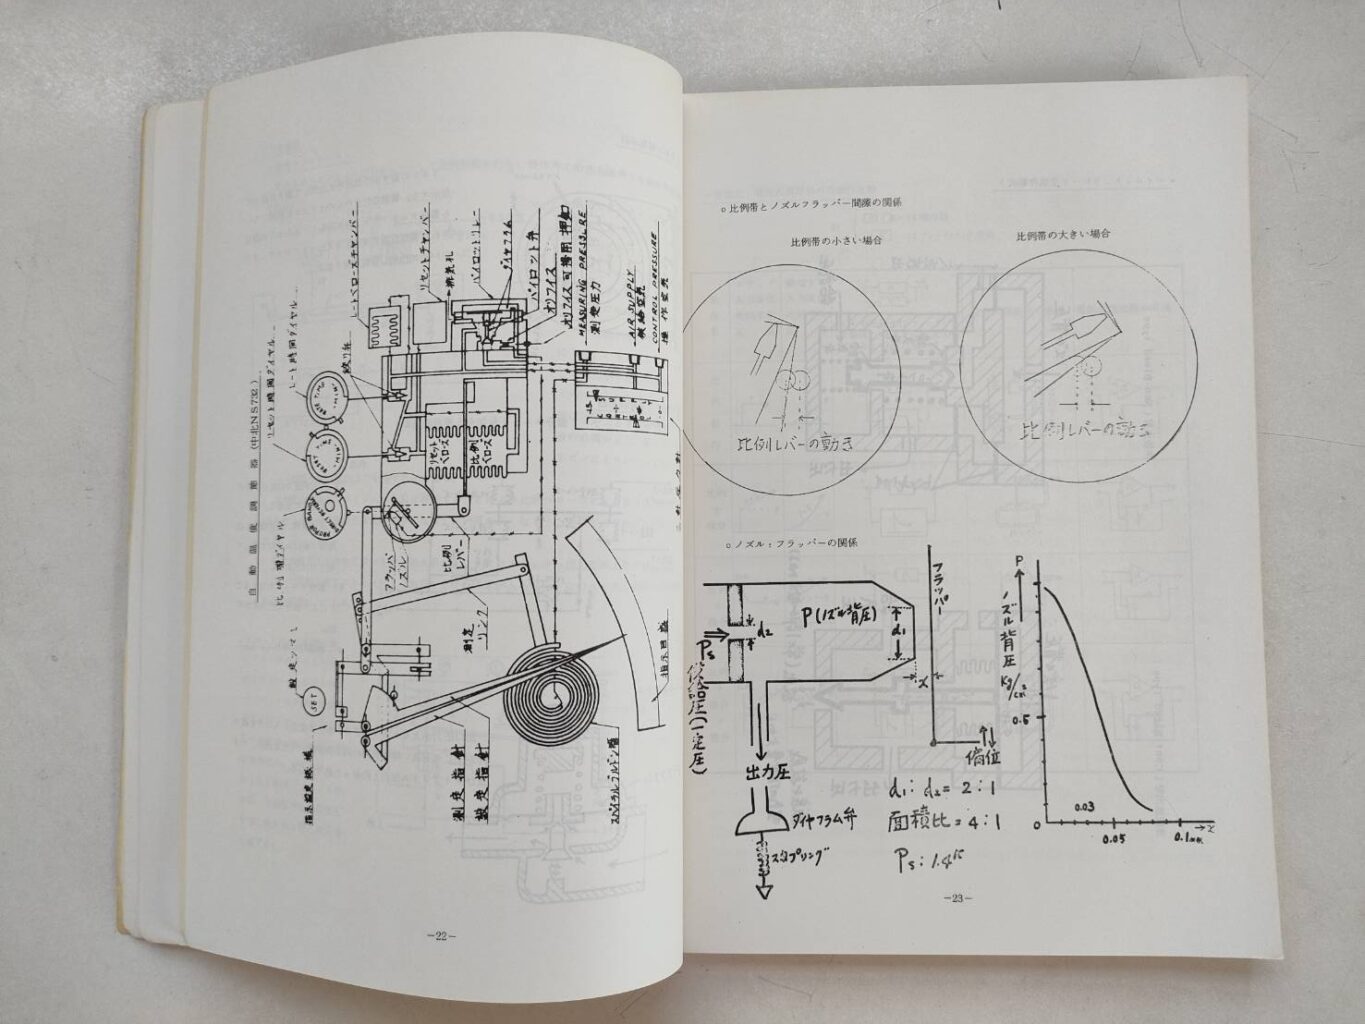 自動温度調節器(中北NS732)
リセット時間ダイヤル
レート時間ダイヤル
レートベローズチャンバー
リセットチャンバー
排気孔
パイロットリレー
ダイヤフラム
パイロット弁
オリフイス
オリフイス可掃用押釦
MEASURING PRESSURE
測定圧力
AIR SUPPLY
供給空気
CONTROL PRESSURE
操作空気
絞り弁
RATE TIME
MIN.
RESET TIME
MIN.
リセット
ベローズ
比例
ベローズ
フラッパ
ノズル
比例
レバー
測定
リンク
SET
測定指針
設定指針
スパイラルブルドン管
指示目盛
−22−
○比例帯とノズルフラッパー間隙の関係
比例帯の小さい場合
比例帯の大きい場合
比例レバーの動き
比例レバーの動き
○ノズル:フラッパーの関係
Ps
(一定圧)
d2
P(ノズル背圧)
d1
x
フラッパー
偏位
出力圧
ダイヤフラム弁
スプリング
d1:d2=2:1
面積比=4:1
Ps:1.4K
P
ノズル背圧
Kg/cm²
0.5
0
0.03
0.05
0.1
x
−23−